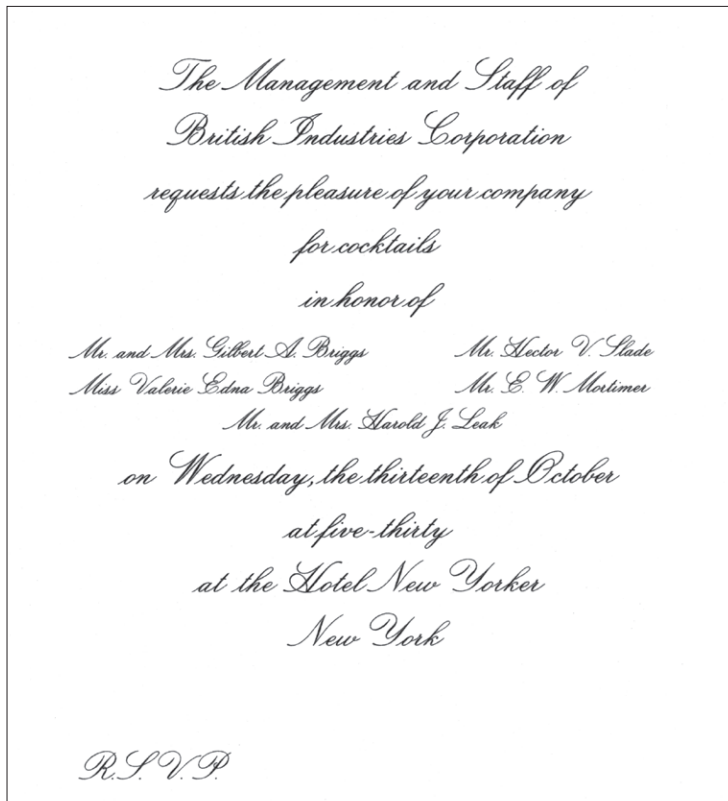 The Management and Staff of
British Industries Corporation
requests the pleasure of your company
for cocktails
in honor of
Mr. and Mrs. Gilbert A. Briggs Mr. Hector V. Slade
Miss Valerie Edna Briggs Mr. E. W. Mortimer
Mr. and Mrs. Harold J. Leak
on Wednesday, the thirteenth of October
at five-thirty
at the Hotel New Yorker
New York
R.S.V.P.